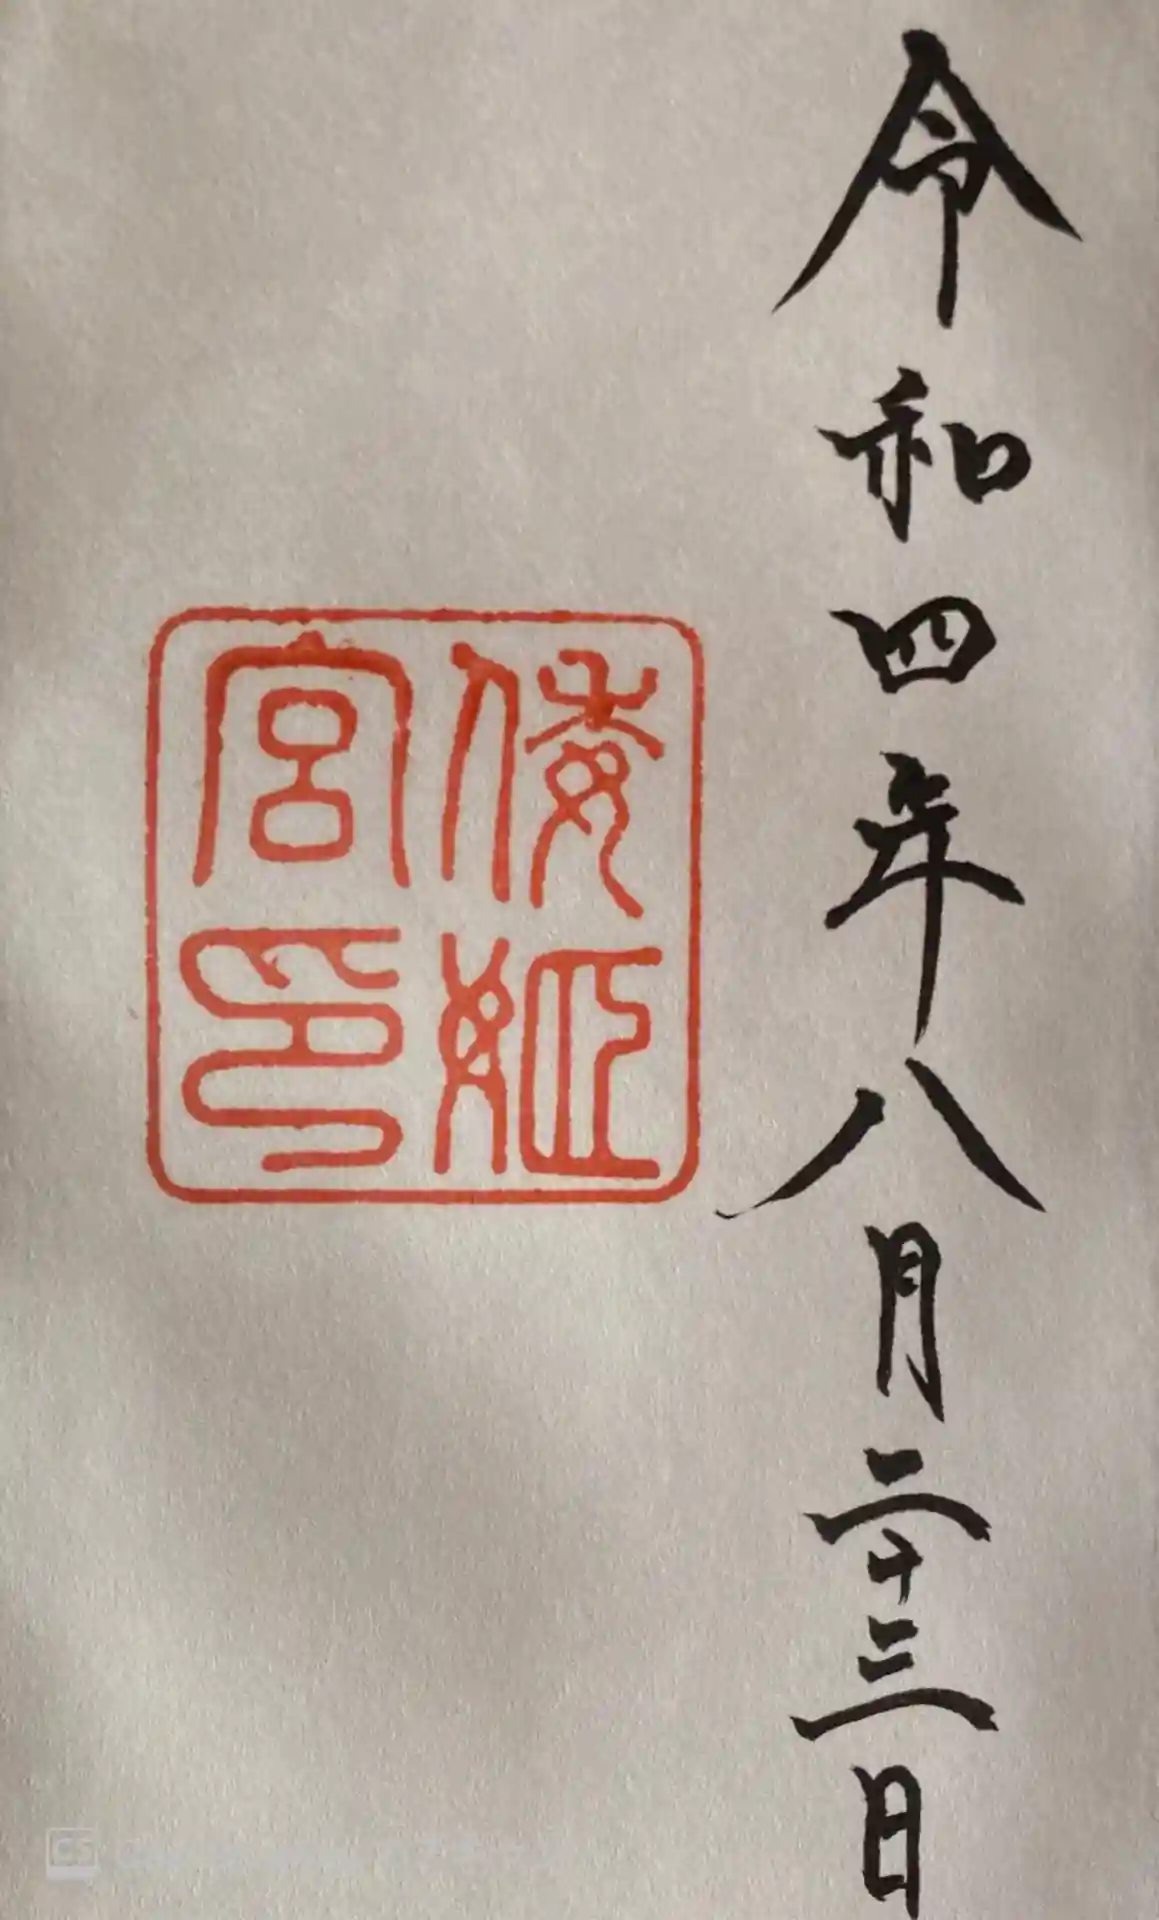 令和四年八月二十三日
倭姫
宮印
CS